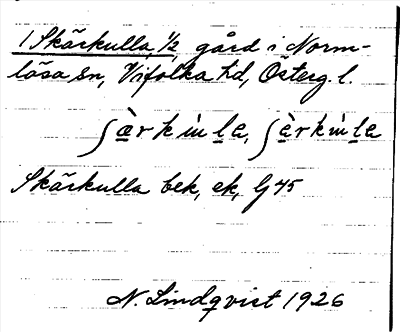 1 Skärkulla, 1/2, gård i Norm-
lösa sn, Vifolka hd, Österg. l.
Skärkulla bek, ek, G 45
N. Lindqvist 1926